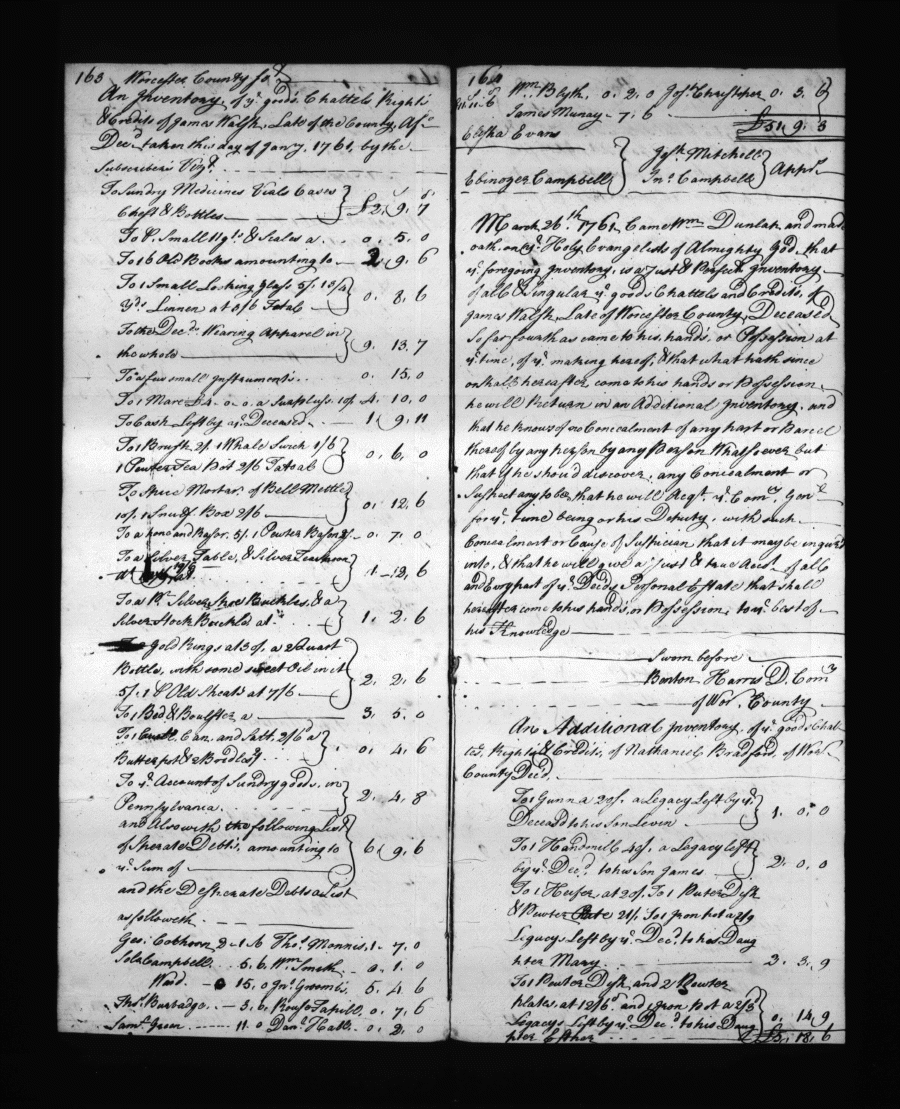 163 Worcester County sct
An Inventory of ye. goods Chattels Rights
& Credits of James Walsh, Late of the County Afs
Decd. taken this day of Jany. 1761, by the
Subscribers Vizt.
To Sundry Medicines Vials Cases
Chest & Bottles £2. 9. 7
To P. Small & Scales a 0. 5. 0
To 16 Old Books amounting to 2. 9. 6
To 1 Small Looking Glass 5/. 
yds Linnen at Total 0. 8. 6
To the Decd. Wearing Apparel in
the whole 9. 13. 7
To a few small Instruments 0. 15. 0
To 1 Mare £4. 0. 0. a Surpluss 10/. 4. 10. 0
To Cash Left by ye. Deceased 1. 9. 11
To 1 Brush 2/. 1 Whale 1/6
1 Pewter Tea Pot 2/6 Totoal 0. 6. 0
To Mortar of Bell Mettle
10/. 1 Snuf Box 2/6 0. 12. 6
To a hone and Rasor 5/. 1 Pewter Bason 2/. 0. 7. 0
To a Silver Table, & Silver Teaspoon
at 1. 2. 6
To a Pr. Silver Shoe Buckles, & a
Silver Stock Buckle at 1. 2. 6
Gold Rings at 30/. a 2 Quart
Bottle, with some sweet Oil in it
5/. 1 P Old Sheats at 7/6 2. 2. 6
To 1 Bed & Boulster a 3. 5. 0
To 1 Can and Salt 2/6 a
Butter pot & 2 Bridles 0. 4. 6
To ye. Account of Sundry goods in
Pennsylvania 2. 4. 8
and Also with the following List
of Sperate Debts, amounting to
ye. Sum of 6. 9. 6
and the Desperate Debts a List
as followeth
Geo: Cothorn 2-1.6 Thos. Monnis 1. 7. 0
Solo Campbell 5. 6. Wm. Smith 0. 1. 0
Ward 15. 0 Jno. Groomb 5. 4. 6
Thos. Burbadge 3. 6. 0. 7. 6
Saml. Green 11. 0 Danl. Hall 0. 2. 0
164
Wm. Blyth 0. 2. 0 Josh. Christpher 0. 3. 6
James Munay 7. 6
£51. 9. 3
Elisha Evans
Josh. Mitchell
Ebinezer Campbell Jno. Campbell Apprs.
March 26th. 1761, Came Wm Dunlap and made
oath on ye. Holy Evangelists of Almighty God that
ye. foregoing Inventory, is a Just & Perfect Inventory
of all & Singular ye. goods Chattels and Credits of
James Walsh, Late of Worcester County, Deceased
So far fourth as came to his hands, or Possession at
ye. time, of ye. making hereof, & that what hath since
or shall hereafter come to his hands or Possession
he will Return in an Additional Inventory, and
that he knows of no Concealment of any part or Parcel
thereof by any person by any Person Whatsoever but
that if he should discover, any Concealment or
Suspect any to be, that he will Aqt. ye. Comy. Genl.
for ye. time being or his Deputy, with such
Concealment or Cause of Suspician that it may be inquired
into, & that he will give a Just & true Acct. of all
and Every part of ye. Decds Personal Estate that shall
hereafter come to his hands, or Possession, to ye. best of
his Knowledge
Sworn before
Benton Harris D. Comy
of Wor. County
An Additional Inventory, of ye. goods Chat
tels, Rights & Credits, of Nathaniel Bradford, of Wor
County Decd.
To 1 Gunn a 20/. a Legacy Left by ye.
Deceasd to his Son Levin 1. 0. 0
To 1 Handmil 40/. a Legacy left
by ye. Decd. to his son James 2. 0. 0
To 1 Heifer at 20/. To 1 Puter Dish
& Pewter Plate 21/. To 1 Iron pot a 2/9
Legacys Left by ye. Decd. to his Daug
hter Mary 3. 3. 9
To 1 Pewter Dish, and 2 Pewter
plates, at 12/6 and 1 Iron pot a 2/3
Legacys Left by ye. Decd. to his Daug 0. 14. 9
hter Esther £5. 18. 6